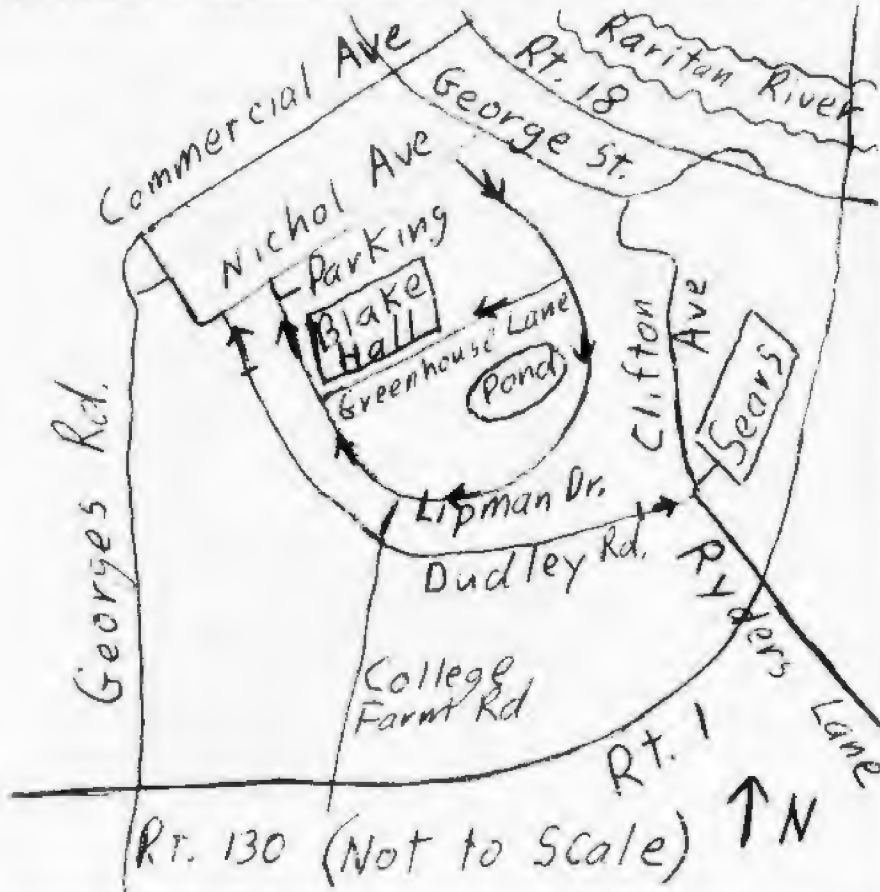 Commercial Ave
Raritan River
Rt. 18
George St.
Nichol Ave
Parking
Blake
Hall
Greenhouse Lane
Pond
Clifton
Ave
Sears
Georges Rd.
Lipman Dr.
Dudley Rd.
Ryders Lane
College
Farm Rd
Rt. 1
N
Rt. 130 (Not to Scale)